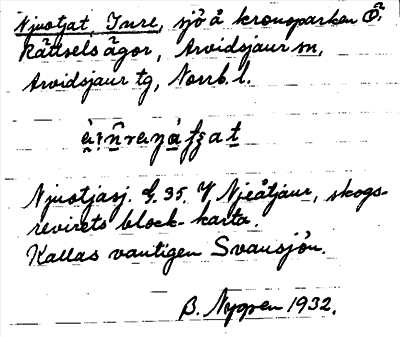 Njuotjat, Inre, sjö å kronoparken Ö.
Rättsels ägor, Arvidsjaur sn,
Arvidsjaur tg, Norrb. l.
Njuotjasj. G. 35. V Njeåtjaur, skogs-
revirets block-karta.
Kallas vanligen Svansjön.
B. Nygren 1932.